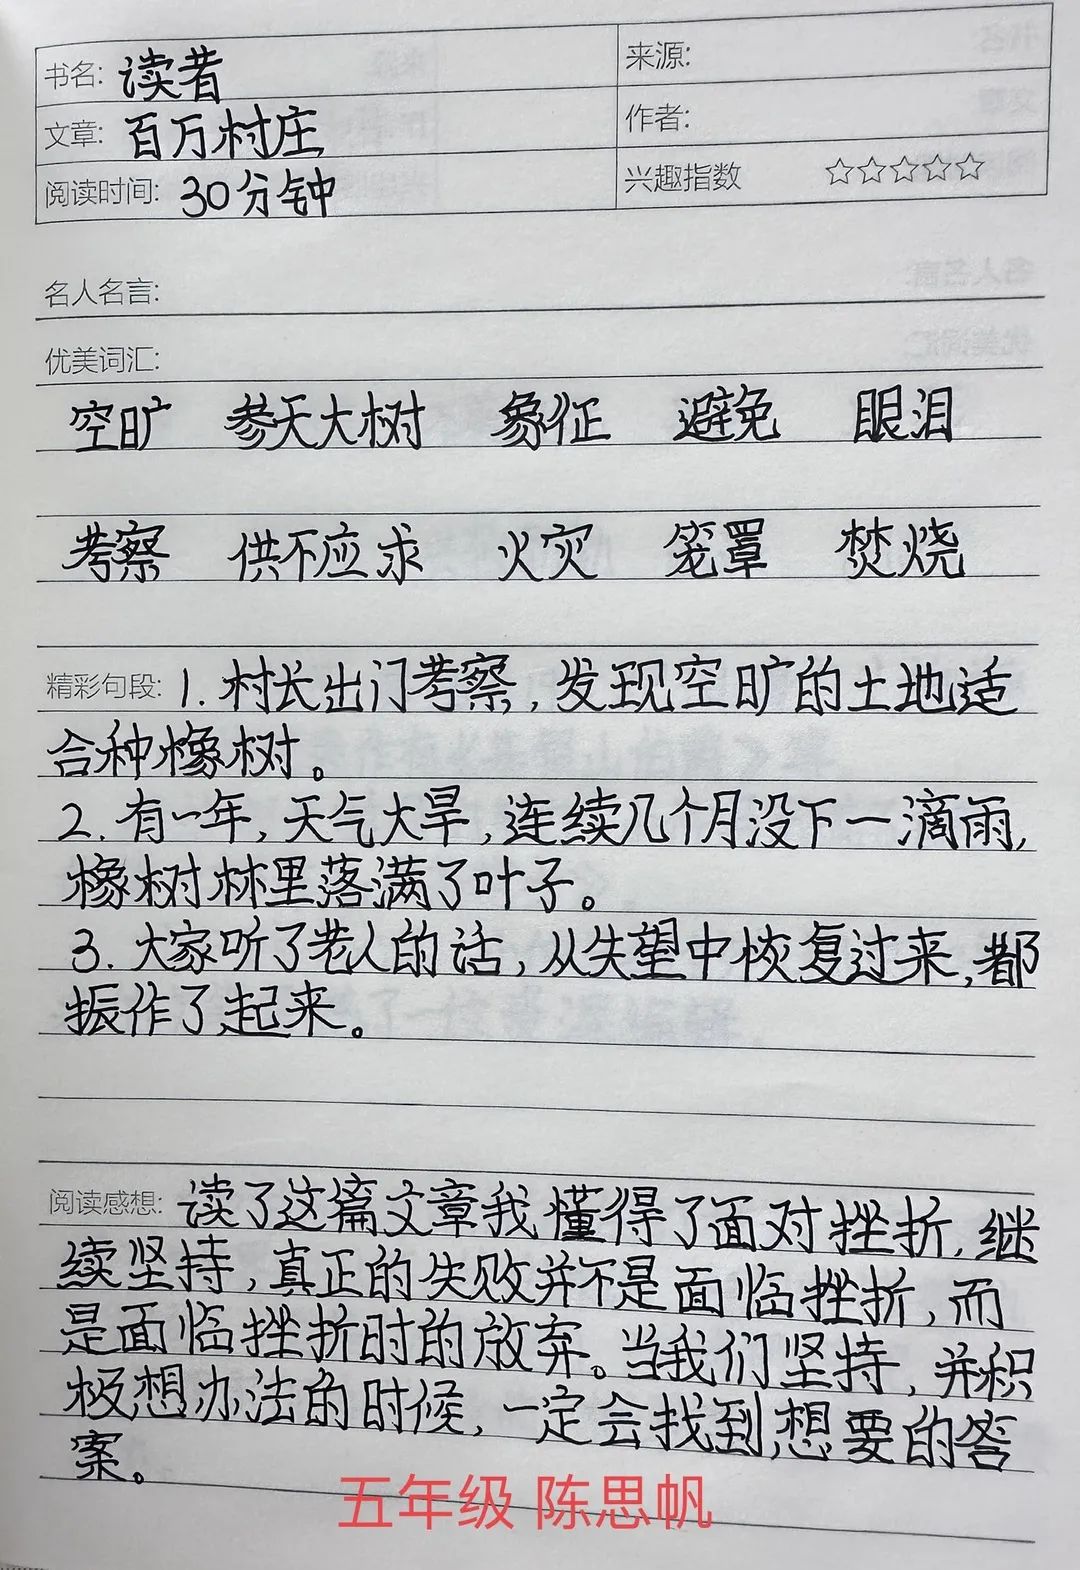 书名: 读者
来源:
文章: 百万村庄
作者:
阅读时间: 30分钟
兴趣指数 ☆☆☆☆☆
名人名言:
优美词汇:
空旷 参天大树 象征 避免 眼泪
考察 供不应求 火灾 笼罩 焚烧
精彩句段: 1. 村长出门考察,发现空旷的土地适
合种橡树。
2. 有一年,天气大旱,连续几个月没下一滴雨,
橡树林里落满了叶子。
3. 大家听了老人的话,从失望中恢复过来,都
振作了起来。
阅读感想: 读了这篇文章我懂得了面对挫折,继
续坚持,真正的失败并不是面临挫折,而
是面临挫折时的放弃。当我们坚持,并积
极想办法的时候,一定会找到想要的答
案。
五年级 陈思帆